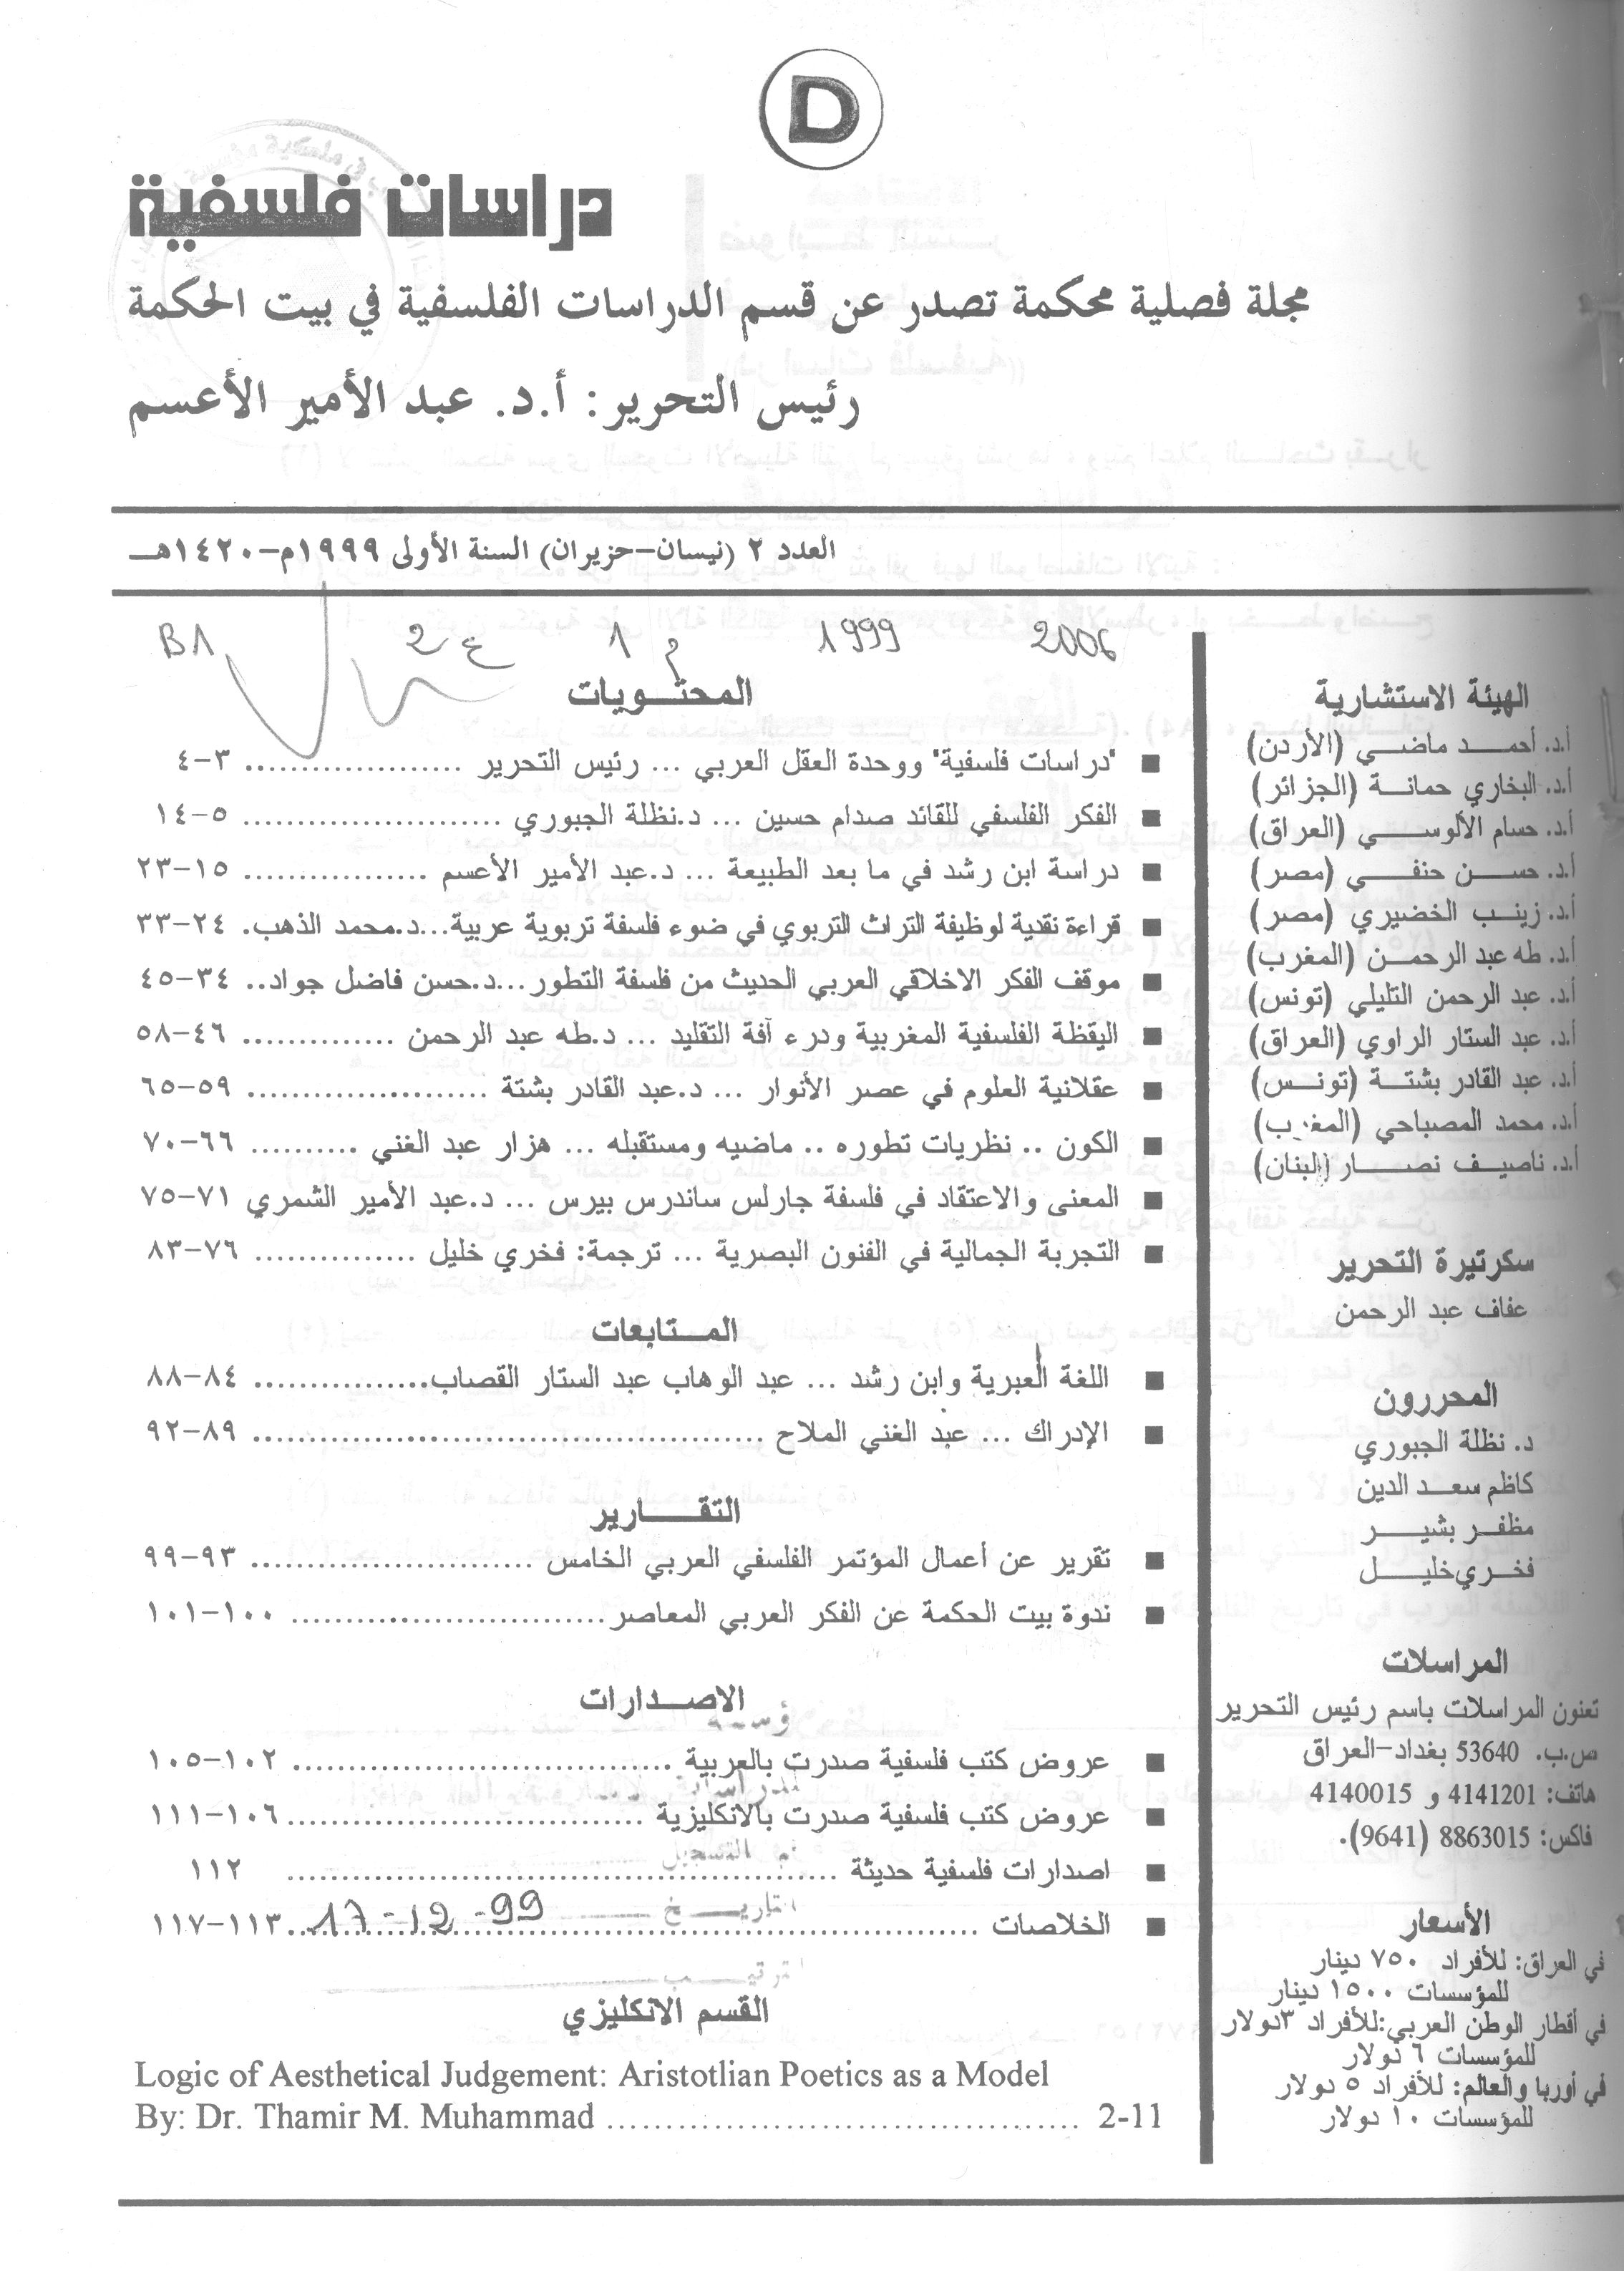 D
دراسات فلسفية
مجلة فصلية محكمة تصدر عن قسم الدراسات الفلسفية في بيت الحكمة
رئيس التحرير: أ.د. عبد الأمير الأعسم
العدد ٢ (نيسان-حزيران) السنة الأولى ١٩٩٩م-١٤٢٠هـ
2006 1999 م 1 ع 2 B1
الهيئة الاستشارية
أ.د. أحمد ماضي (الأردن)
أ.د. البخاري حمانة (الجزائر)
أ.د. حسام الألوسي (العراق)
أ.د. حسن حنفي (مصر)
أ.د. زينب الخضيري (مصر)
أ.د. طه عبد الرحمن (المغرب)
أ.د. عبد الرحمن التليلي (تونس)
أ.د. عبد الستار الراوي (العراق)
أ.د. عبد القادر بشتة (تونس)
أ.د. محمد المصباحي (المغرب)
أ.د. ناصيف نصار (لبنان)
سكرتيرة التحرير
عفاف عبد الرحمن
المحررون
د. نظلة الجبوري
كاظم سعد الدين
مظفر بشير
فخري خليل
المراسلات
تعنون المراسلات باسم رئيس التحرير
ص.ب. 53640 بغداد-العراق
هاتف: 4141201 و 4140015
فاكس: 8863015 (9641).
الأسعار
في العراق: للأفراد ٧٥٠ دينار
للمؤسسات ١٥٠٠ دينار
في أقطار الوطن العربي:للأفراد ٣دولار
للمؤسسات ٦ دولار
في أوربا والعالم: للأفراد ٥ دولار
للمؤسسات ١٠ دولار
المحتويات
■ "دراسات فلسفية" ووحدة العقل العربي ... رئيس التحرير .................... ٣-٤
■ الفكر الفلسفي للقائد صدام حسين ... د.نظلة الجبوري ........................ ٥-١٤
■ دراسة ابن رشد في ما بعد الطبيعة ... د.عبد الأمير الأعسم ................. ١٥-٢٣
■ قراءة نقدية لوظيفة التراث التربوي في ضوء فلسفة تربوية عربية...د.محمد الذهب. ٢٤-٣٣
■ موقف الفكر الاخلاقي العربي الحديث من فلسفة التطور...د.حسن فاضل جواد.. ٣٤-٤٥
■ اليقظة الفلسفية المغربية ودرء آفة التقليد ... د.طه عبد الرحمن .............. ٤٦-٥٨
■ عقلانية العلوم في عصر الأنوار ... د.عبد القادر بشتة ...................... ٥٩-٦٥
■ الكون .. نظريات تطوره .. ماضيه ومستقبله ... هزار عبد الغني .......... ٦٦-٧٠
■ المعنى والاعتقاد في فلسفة جارلس ساندرس بيرس ... د.عبد الأمير الشمري ٧١-٧٥
■ التجربة الجمالية في الفنون البصرية ... ترجمة: فخري خليل ............... ٧٦-٨٣
المتابعات
■ اللغة العبرية وابن رشد ... عبد الوهاب عبد الستار القصاب................ ٨٤-٨٨
■ الإدراك ... عبد الغني الملاح ............................................. ٨٩-٩٢
التقارير
■ تقرير عن أعمال المؤتمر الفلسفي العربي الخامس .......................... ٩٣-٩٩
■ ندوة بيت الحكمة عن الفكر العربي المعاصر............................. ١٠٠-١٠١
الاصدارات
■ عروض كتب فلسفية صدرت بالعربية ................................... ١٠٢-١٠٥
■ عروض كتب فلسفية صدرت بالانكليزية ................................. ١٠٦-١١١
■ اصدارات فلسفية حديثة .................................................. ١١٢
■ الخلاصات ............................................................... ١١٣-١١٧
17-12-99
القسم الانكليزي
Logic of Aesthetical Judgement: Aristotlian Poetics as a Model
By: Dr. Thamir M. Muhammad ........................................ 2-11